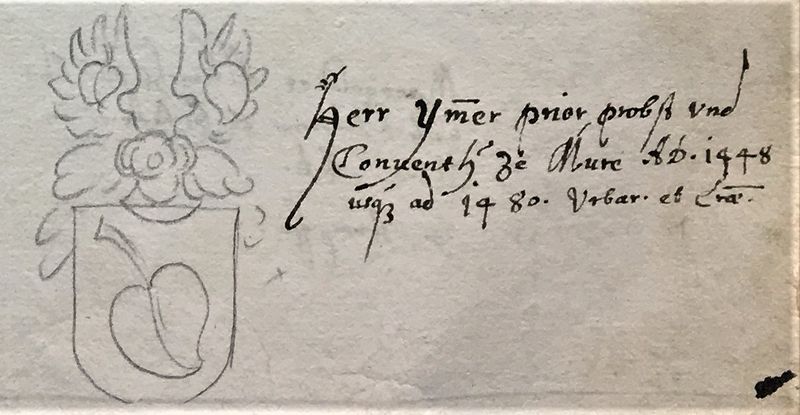 Herr Ym̄er prior probst vnd
Conuenth ze Mure AD. 1448
usq3 ad 1480. Vrbar. et